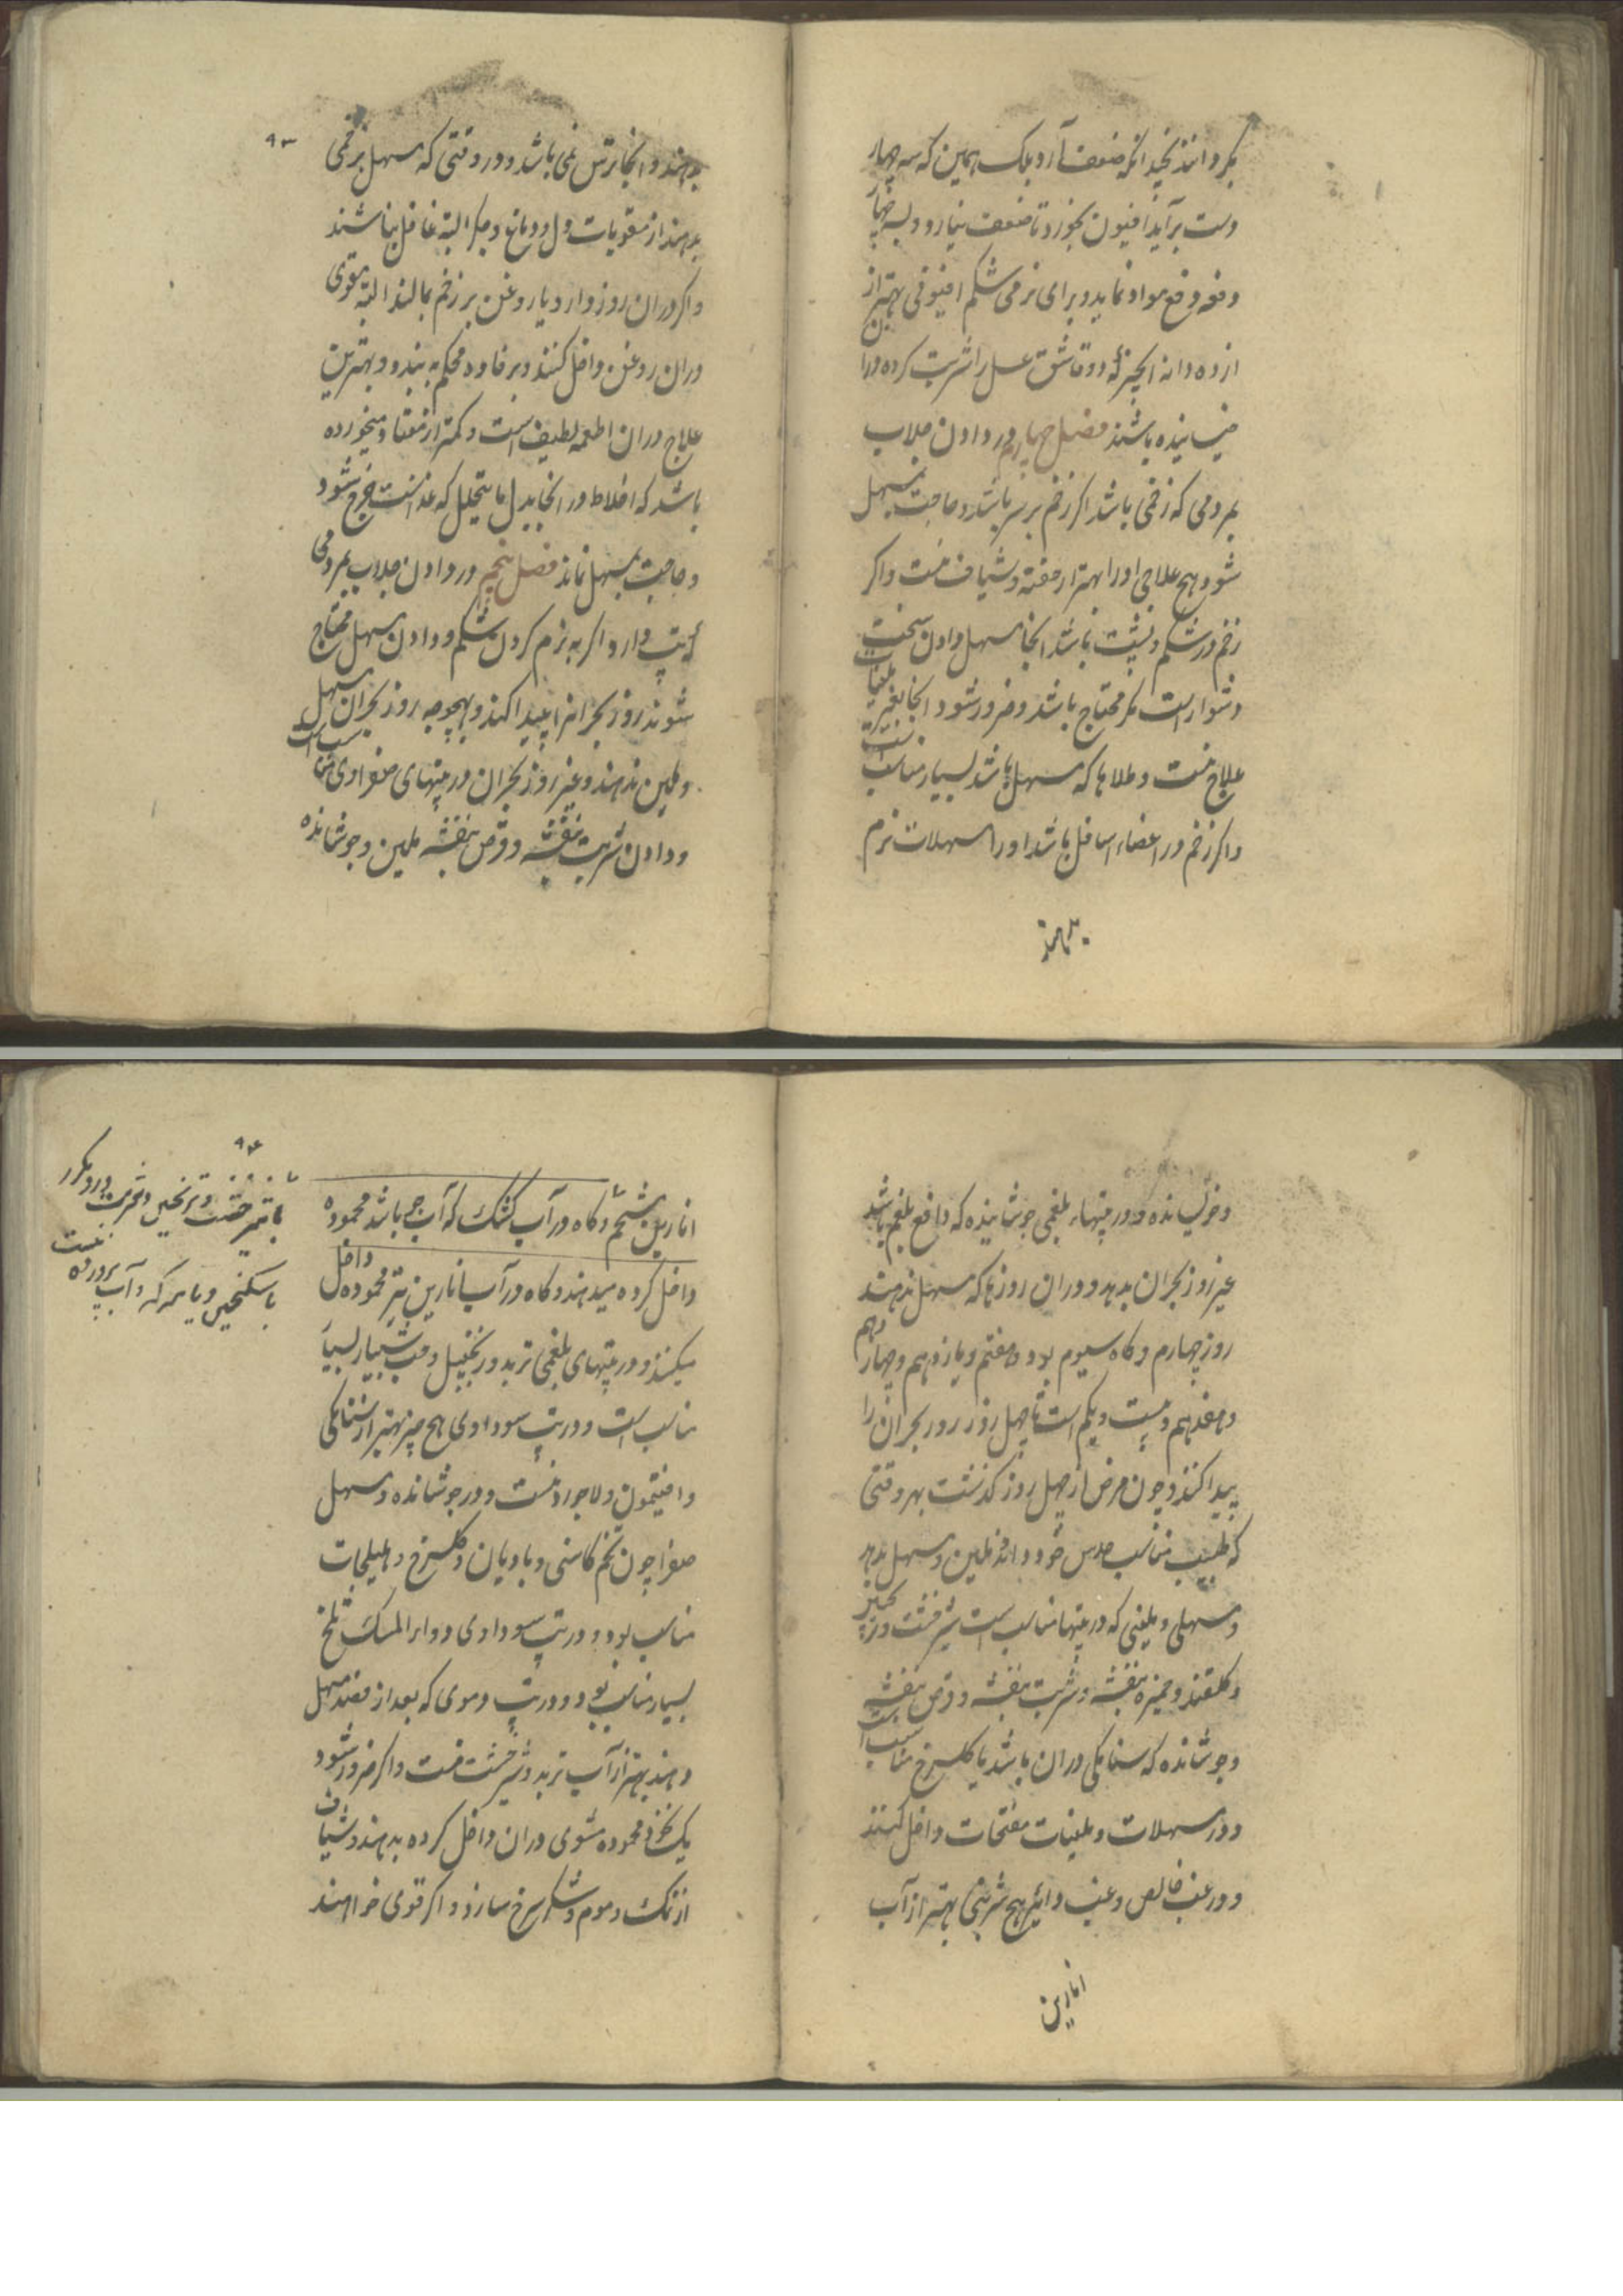 بکر و انند نخید انکه ضعف آرد بلک همین که سه چهار
دست برآید افیون بخورد تا ضعف نیارد و دبسه چهار
دفعه دفع مواد نماید و برای نرمی شکم افیونی بهتر از
از ده دانه انجیر که دو قاشق عسل را شربت کرده در ان
خیسانیده باشند فصل چهارم در دادن جلاب
بمردمی که زخمی باشد اکر زخم بر سر باشد و حاجت بمسهل
شود هیچ علاجی او را بهتر از حقنه و شیاف نیست و اکر
زخم در شکم و پشت باشد انجا مسهل دادن سخت
دشوار است مکر محتاج باشد و ضرور شود انجا بغیر ملینات
علاج نیست و طلاها که مسهل باشد بسیار مناسب است
و اکر زخم در اعضاء اسافل باشد او را مسهلات نرم
بدهند
۹۳
بدهند و انجا ترس نمی باشد و در وقتی که مسهل بزخمی
بدهند از مقویات دل و دماغ و جکر البته غافل نباشند
و اکر دران روز دارو یا روغن بر زخم بمالند البته مقوی
دران روغن داخل کنند و برفاده محکم به بندد و بهترین
علاج دران اطعمه لطیف است و کمتر از معتاد میخورده
باشد که اخلاط در انجا بدل ما یتحلل که غذاست خرج شود
و حاجت بمسهل نماند فصل پنجم در دادن جلاب بمردمی
که تپ دارد اکر به نرم کردن شکم و دادن مسهل محتاج
شوند روز بحرانرا پیدا کنند و بهیچوجه روز بحران مسهل
و ملین ندهند و غیر روز بحران در تپهای صفراوی مناسب است
و دادن شربت بنفشه و قرص بنفشه ملین و جوشانده
و خولیسانده و در تپهاء بلغمی جوشانیده که دافع بلغم باشد
غیر روز بحران بدهد و دران روزها که مسهل ندهند
روز چهارم و کاه سیوم بود و هفتم و یازدهم و چهاردهم
و هفدهم و بیست و یکم است تا چهل روز روز بحران را
پیدا کنند و چون مرض از چهل روز کذشت بهر وقتی
که طبیب مناسب حدس خود داند ملین و مسهل بدهد
و مسهلی و ملینی که در تپها مناسب است شیرخشت و ترنجبین
و کلقند و خمیره بنفشه و شربت بنفشه و قرص بنفشه
و جوشانده که سنا مکی دران باشد یا کلسرخ مناسب است
و در مسهلات و ملینات مفتحات داخل کنند
و در غب خالص و غب دائر هیچ شربتی بهتر از آب
انارین
۹۴
انارین بشحم و کاه در آب کشک که آب جو باشد محموده
داخل کرده میدهند و کاه در آب انارین نیز محموده داخل
میکنند و در تپهای بلغمی تربد و زنجبیل و حب شبیار بسیار
مناسب است و در تپ سوداوی هیچ چیز بهتر از سنا مکی
و افتیمون و لاجورد نیست و در جوشانده و مسهل
صفرا چون تخم کاسنی و بادیان و کلسرخ و هلیلجات
مناسب بود و در تپ سوداوی دواء المسک تلخ
بسیار مناسب بود و در تپ دموی که بعد از فصد مسهل
دهند بهتر از آب تربد و شیرخشت نیست و اکر ضرور شود
یک نخود محموده مشوی دران داخل کرده بدهند و شیاف
از نمک و موم و شکر سرخ سازند و اکر قوی خواهند
با شیرخشت و ترنجبین و شربت ورد مکرر
نیست
با سکنجبین و یا سرکه و آب پرورده